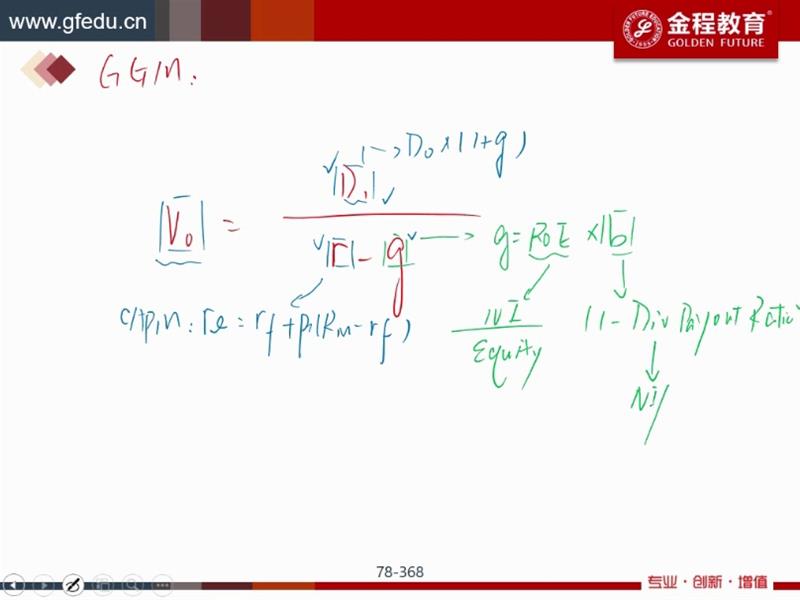 www.gfedu.cn
金程教育
GOLDEN FUTURE
GGM:
D₁ → D₀×(1+g)
V₀ =
r - g → g = ROE × b
CAPM: re = rf + β(Rm - rf)
NI
Equity
1 - Div Payout Ratio
NI/
78-368
专业·创新·增值